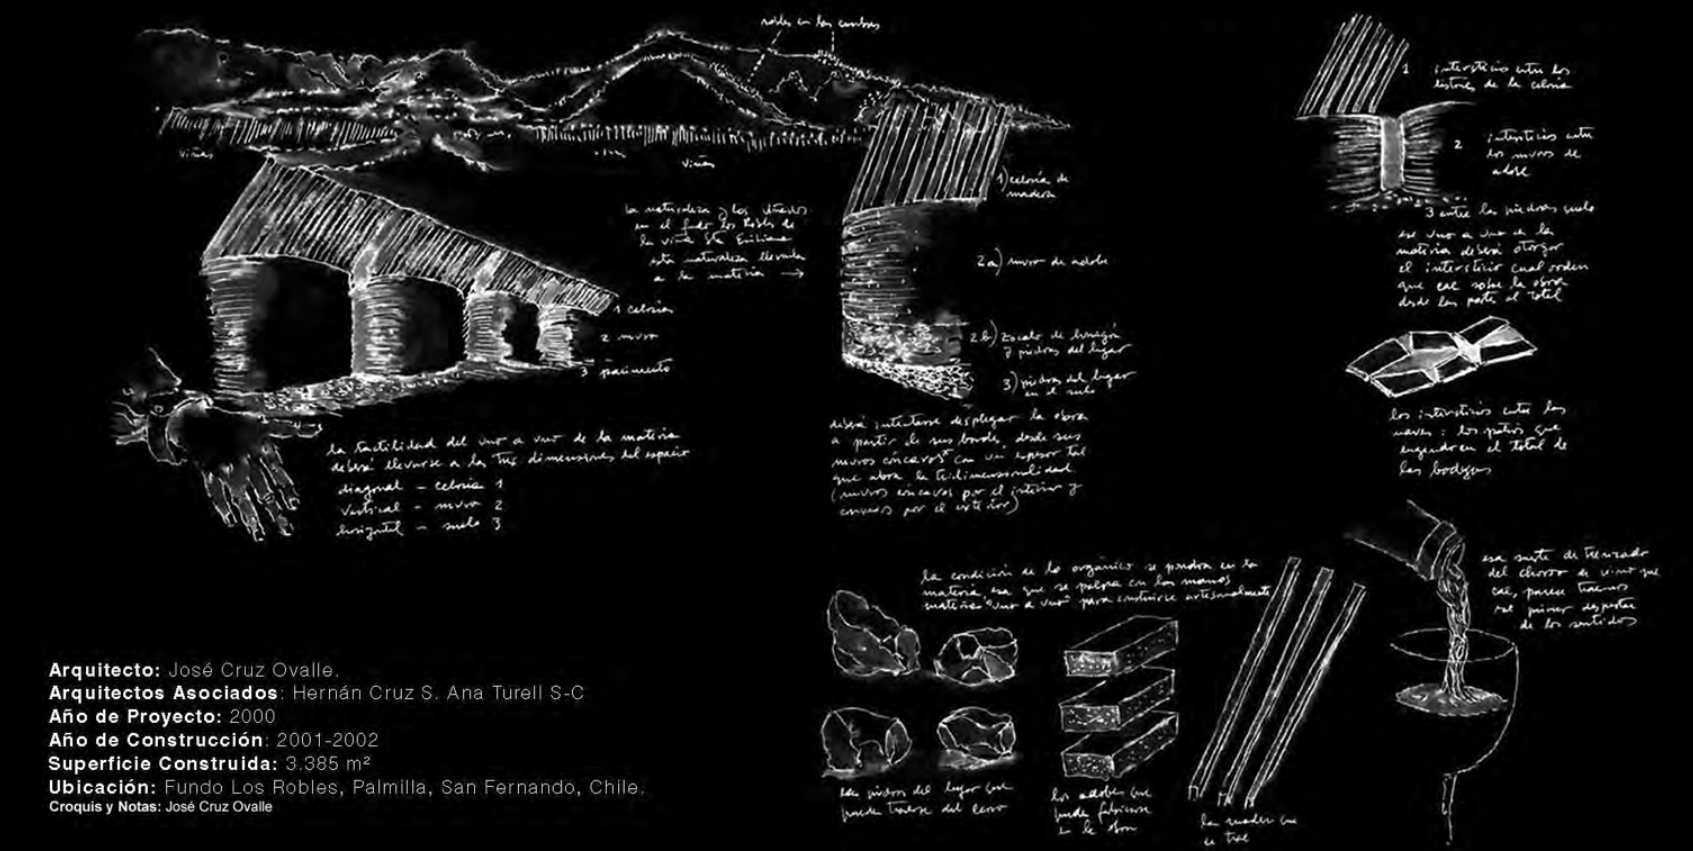 robles en las cumbres
viñas
viñas
la naturaleza y los viñedos
en el fundo los Robles de
la viña Sta Emiliana
esta naturaleza llevada
a la materia →
1 celosía
2 muro
3 pavimento
la tactilidad del uno a uno de la materia
deberá llevarse a las tres dimensiones del espacio
diagonal - celosía 1
vertical - muro 2
horizontal - suelo 3
1) celosía de
madera
2a) muro de adobe
2b) zócalo de hormigón
y piedras del lugar
3) piedras del lugar
en el suelo
deberá intentarse desplegar la obra
a partir de sus bordes, desde sus
muros cóncavos con un espesor tal
que abra la tridimensionalidad
(muros cóncavos por el interior y
convexos por el exterior)
1 intersticio entre los
listones de la celosía
2 intersticios entre
los muros de
adobe
3 entre las piedras suelo
ese uno a uno de la
materia deberá otorgar
el intersticio cual orden
que cae sobre la obra
desde las partes al total
los intersticios entre las
naves: los patios que
engendran el total de
las bodegas
la condición de lo orgánico se pondrá en la
materia, esa que se palpa en las manos
materia "uno a uno" para construirse artesanalmente
las piedras del lugar que
pueden traerse del cerro
los adobes que
puede fabricarse
en la obra
la madera que
se trae
esa suerte de trenzado
del chorro de vino que
cae, parece traernos
al primer despertar
de los sentidos
Arquitecto: José Cruz Ovalle.
Arquitectos Asociados: Hernán Cruz S. Ana Turell S-C
Año de Proyecto: 2000
Año de Construcción: 2001-2002
Superficie Construida: 3.385 m²
Ubicación: Fundo Los Robles, Palmilla, San Fernando, Chile.
Croquis y Notas: José Cruz Ovalle